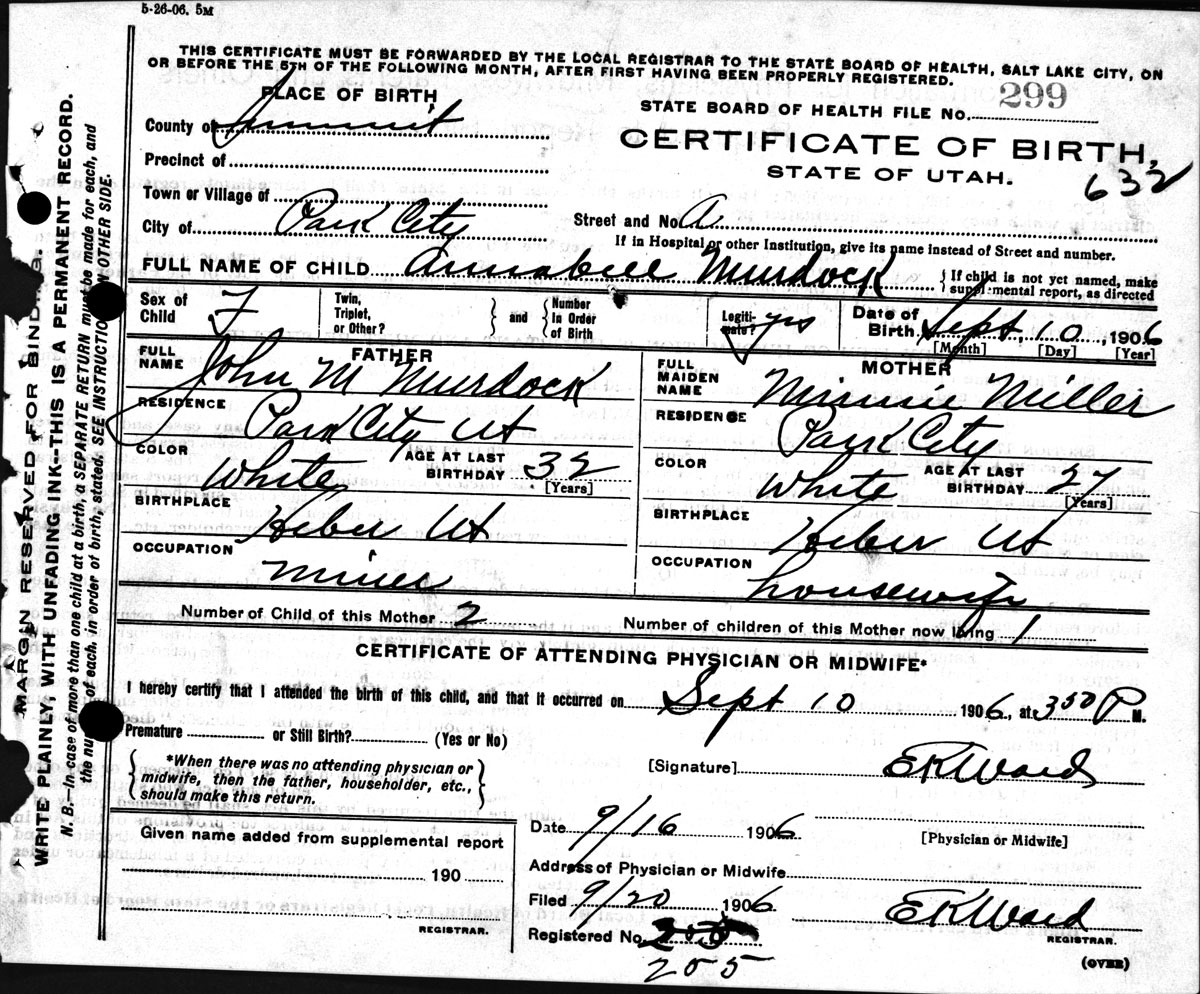 5-26-06. 5M
THIS CERTIFICATE MUST BE FORWARDED BY THE LOCAL REGISTRAR TO THE STATE BOARD OF HEALTH, SALT LAKE CITY, ON
OR BEFORE THE 5TH OF THE FOLLOWING MONTH, AFTER FIRST HAVING BEEN PROPERLY REGISTERED.
PLACE OF BIRTH
STATE BOARD OF HEALTH FILE No. 299
County of Summit
CERTIFICATE OF BIRTH,
Precinct of
STATE OF UTAH.
632
Town or Village of
City of Park City
Street and No. A
If in Hospital or other Institution, give its name instead of Street and number.
FULL NAME OF CHILD Annabell Murdock {If child is not yet named, make supplemental report, as directed
Sex of Child F
Twin, Triplet, or Other? } and { Number In Order of Birth
Legitimate? yes
Date of Birth Sept 10, 1906
[Month] [Day] [Year]
FATHER
FULL NAME John M Murdock
RESIDENCE Park City Ut
COLOR White AGE AT LAST BIRTHDAY 32
[Years]
BIRTHPLACE Heber Ut
OCCUPATION miner
MOTHER
FULL MAIDEN NAME Minnie Miller
RESIDENCE Park City
COLOR White AGE AT LAST BIRTHDAY 27
[Years]
BIRTHPLACE Heber Ut
OCCUPATION housewife
Number of Child of this Mother 2 Number of children of this Mother now living 1
CERTIFICATE OF ATTENDING PHYSICIAN OR MIDWIFE*
I hereby certify that I attended the birth of this child, and that it occurred on Sept 10 1906, at 3 50 P M.
Premature or Still Birth? (Yes or No)
{*When there was no attending physician or
midwife, then the father, householder, etc.,
should make this return.}
[Signature] E K Ward
Date 9/16 1906
[Physician or Midwife]
Given name added from supplemental report
190
REGISTRAR.
Address of Physician or Midwife
Filed 9/20 1906 E K Ward
REGISTRAR.
Registered No.
205
(OVER)
MARGIN RESERVED FOR BINDING.
WRITE PLAINLY, WITH UNFADING INK—THIS IS A PERMANENT RECORD.
N. B.—In case of more than one child at a birth, a SEPARATE RETURN must be made for each, and
the number of each, in order of birth, stated. SEE INSTRUCTIONS OTHER SIDE.